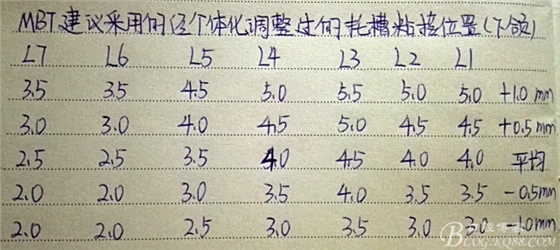 MBT建议采用的经个体化调整过的托槽粘接位置(下颌)
L7 L6 L5 L4 L3 L2 L1
3.5 3.5 4.5 5.0 5.5 5.0 5.0 +1.0 mm
3.0 3.0 4.0 4.5 5.0 4.5 4.5 +0.5 mm
2.5 2.5 3.5 4.0 4.5 4.0 4.0 平均
2.0 2.0 3.0 3.5 4.0 3.5 3.5 -0.5mm
2.0 2.0 2.5 3.0 3.5 3.0 3.0 -1.0mm
BLOG.KQ88.COM